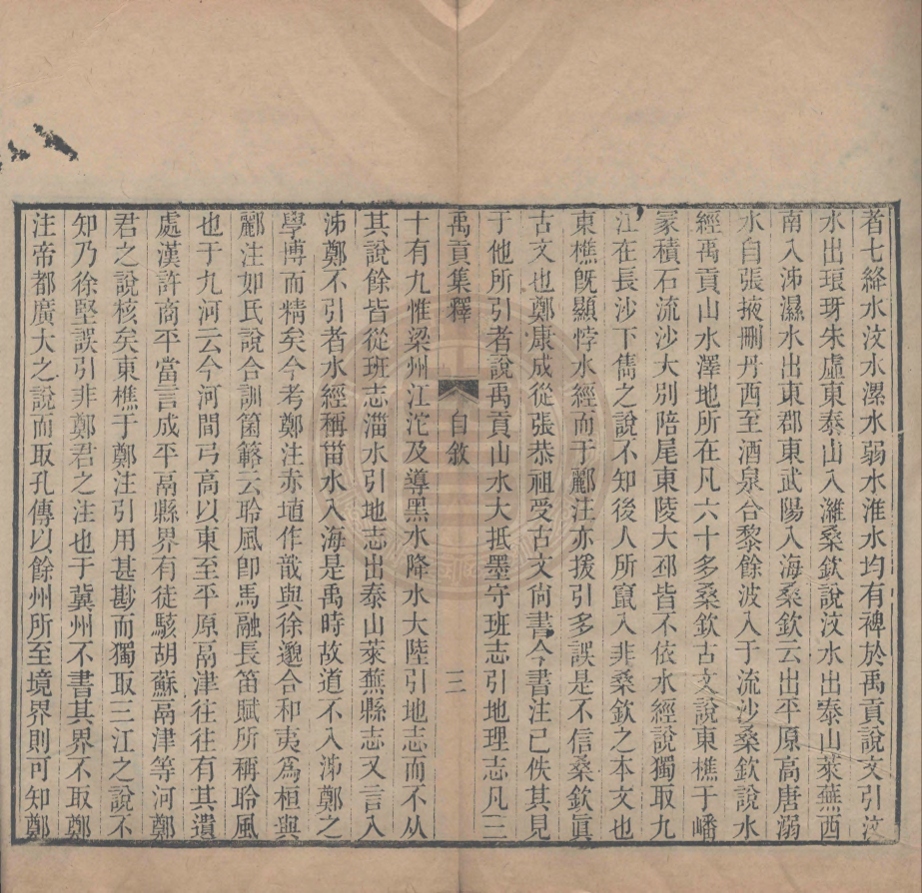 者七絳水汶水漯水弱水淮水均有裨於禹貢說文引汶
水出琅玡朱虛東泰山入濰桑欽說汶水出泰山萊蕪西
南入泲濕水出東郡東武陽入海桑欽云出平原高唐溺
水自張掖刪丹西至酒泉合黎餘波入于流沙桑欽說水
經禹貢山水澤地所在凡六十多桑欽古文說東樵于嶓
冡積石流沙大別陪尾東陵大邳皆不依水經說獨取九
江在長沙下雋之說不知後人所竄入非桑欽之本文也
東樵旣顯悖水經而于酈注亦援引多誤是不信桑欽眞
古文也鄭康成從張恭祖受古文尙書今書注已佚其見
于他所引者說禹貢山水大抵墨守班志引地理志凡三
禹貢集釋 自敘 三
十有九惟梁州江沱及導黑水降水大陸引地志而不从
其說餘皆從班志淄水引地志出泰山萊蕪縣志又言入
泲鄭不引者水經稱甾水入海是禹時故道不入泲鄭之
學博而精矣今考鄭注赤埴作戠與徐邈合和夷爲桓與
酈注如氏說合訓箘簵云聆風卽馬融長笛賦所稱聆風
也于九河云今河間弓高以東至平原鬲津往往有其遺
處漢許商平當言成平鬲縣界有徒駭胡蘇鬲津等河鄭
君之說核矣東樵于鄭注引用甚尠而獨取三江之說不
知乃徐堅誤引非鄭君之注也于冀州不書其界不取鄭
注帝都廣大之說而取孔傳以餘州所至境界則可知鄭